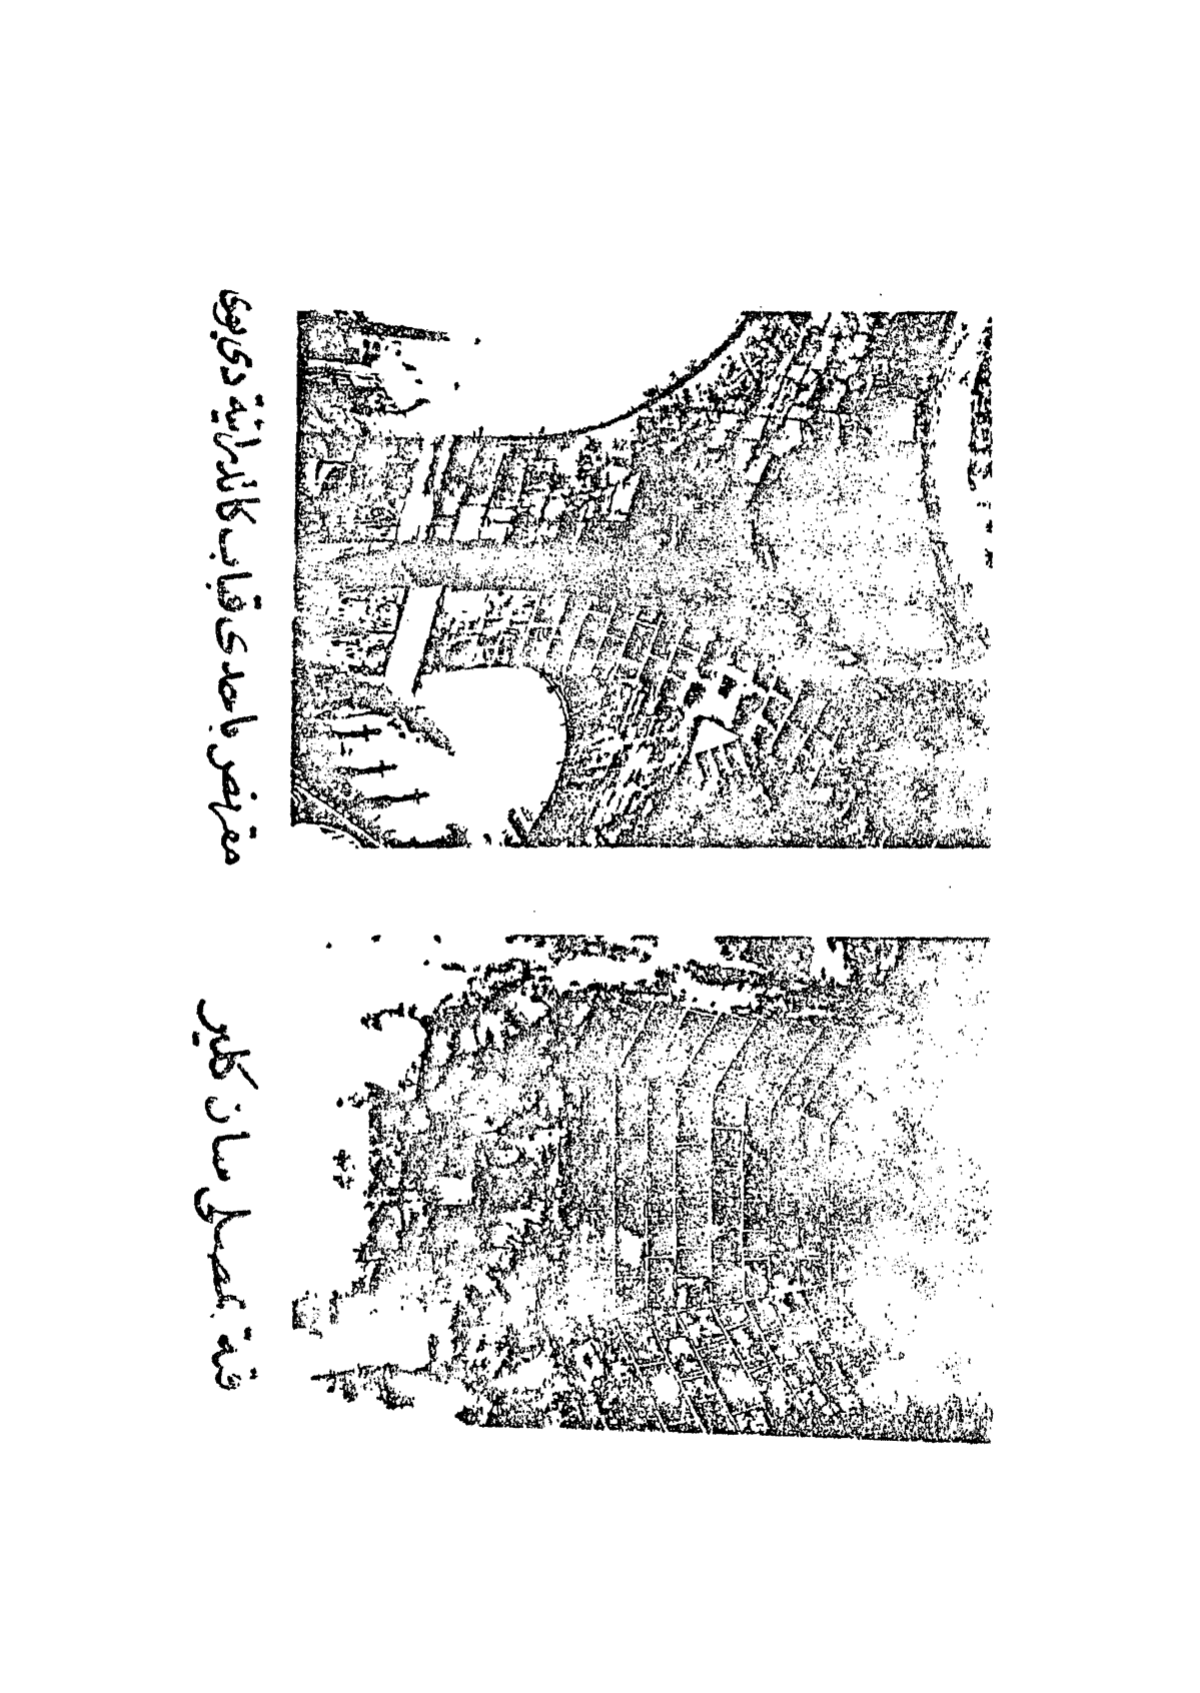 قبة بمصلى سان كلير
مقرنص باحدى قباب كاتدرائية دى بوى